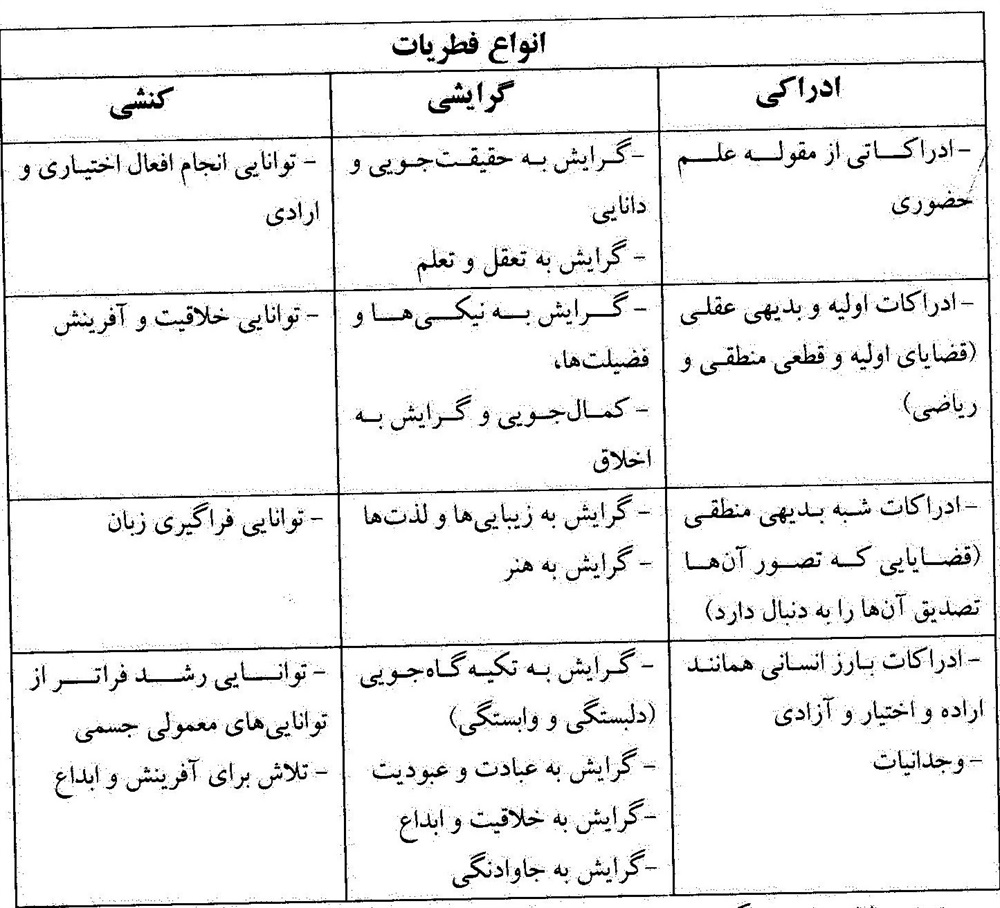 انواع فطریات
ادراکی
گرایشی
کنشی
-ادراکاتی از مقوله علم
حضوری
-گرایش به حقیقت‌جویی و
دانایی
- گرایش به تعقل و تعلم
- توانایی انجام افعال اختیاری و
ارادی
-ادراکات اولیه و بدیهی عقلی
(قضایای اولیه و قطعی منطقی و
ریاضی)
- گرایش به نیکی‌ها و
فضیلت‌ها،
- کمال‌جویی و گرایش به
اخلاق
- توانایی خلاقیت و آفرینش
-ادراکات شبه بدیهی منطقی
(قضایایی که تصور آن‌ها
تصدیق آن‌ها را به دنبال دارد)
- گرایش به زیبایی‌ها و لذت‌ها
- گرایش به هنر
- توانایی فراگیری زبان
-ادراکات بارز انسانی همانند
اراده و اختیار و آزادی
-وجدانیات
- گرایش به تکیه‌گاه‌جویی
(دلبستگی و وابستگی)
- گرایش به عبادت و عبودیت
-گرایش به خلاقیت و ابداع
-گرایش به جاودانگی
- توانایی رشد فراتر از
توانایی‌های معمولی جسمی
- تلاش برای آفرینش و ابداع